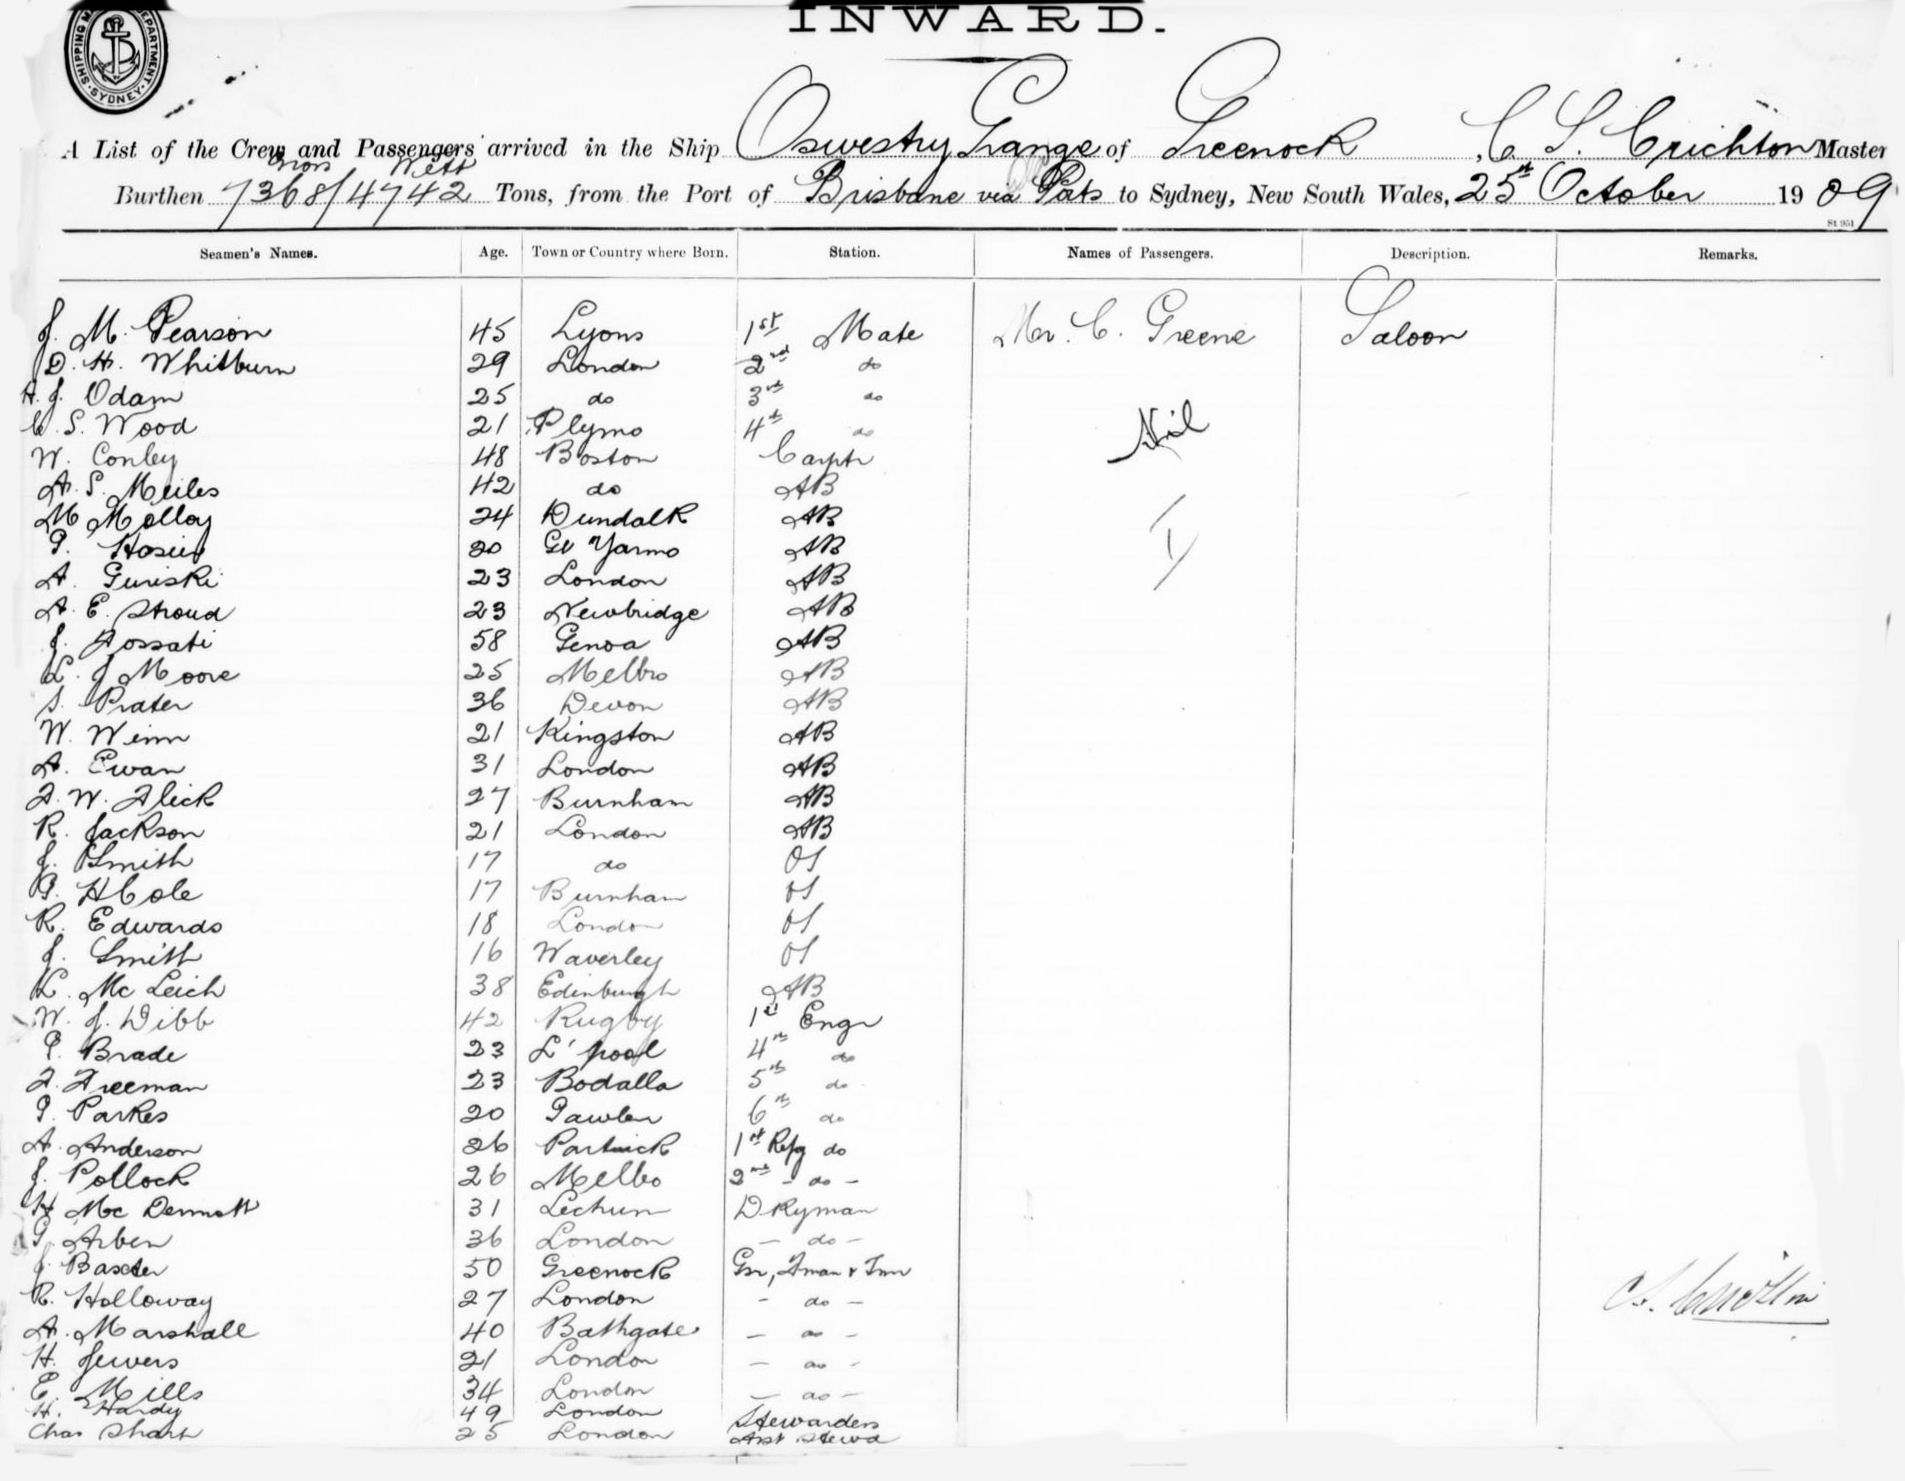 INWARD.
SHIPPING MASTER'S DEPARTMENT · SYDNEY ·
A List of the Crew and Passengers arrived in the Ship Oswestry Grange of Greenock, C S. Crichton Master
Gross Nett
Burthen 7368/4742 Tons, from the Port of Brisbane via Ports to Sydney, New South Wales, 25th October 1909
St 951
Seamen's Names. Age. Town or Country where Born. Station. Names of Passengers. Description. Remarks.
J. M. Pearson 45 Lyons 1st Mate Mr. C. Greene Saloon
D. H. Whitburn 29 London 2nd do
A. J. Odam 25 do 3rd do
C. S. Wood 21 Plymo 4th do Nil
W. Conley 48 Boston Carptr
A. S. Meiles 42 do AB
M Molloy 24 Dundalk AB
P. Hosier 20 Gt Yarmo AB
A. Guriski 23 London AB
A. E. Stroud 23 Newbridge AB
J. Fossati 58 Genoa AB
L. J Moore 25 Melbo AB
S. Prater 36 Devon AB
W. Winn 21 Kingston AB
A. Ewan 31 London AB
F. W. Flick 27 Burnham AB
R. Jackson 21 London AB
J. Smith 17 do OS
P. H Cole 17 Burnham OS
R. Edwards 18 London OS
J. Smith 16 Waverley OS
L. Mc Leich 38 Edinburgh AB
W. J. Dibb 42 Rugby 1st Engr
P. Brade 23 L'pool 4th do
F. Freeman 23 Bodalla 5th do
P. Parkes 20 Gawler 6th do
A. Anderson 26 Partick 1st Refg do
J. Pollock 26 Melbo 2nd - do -
H Mc Dermott 31 D Kyman
G. Arben 36 London - do -
J. Baxter 50 Greenock Gsr, Fman & Tmr
R. Holloway 27 London - do -
A. Marshall 40 Bathgate - do -
H. Jewers 21 London - do -
E. Mills 34 London - do -
H. Hardy 49 London Stewardess
Chas Sharp 25 London Asst Stewd